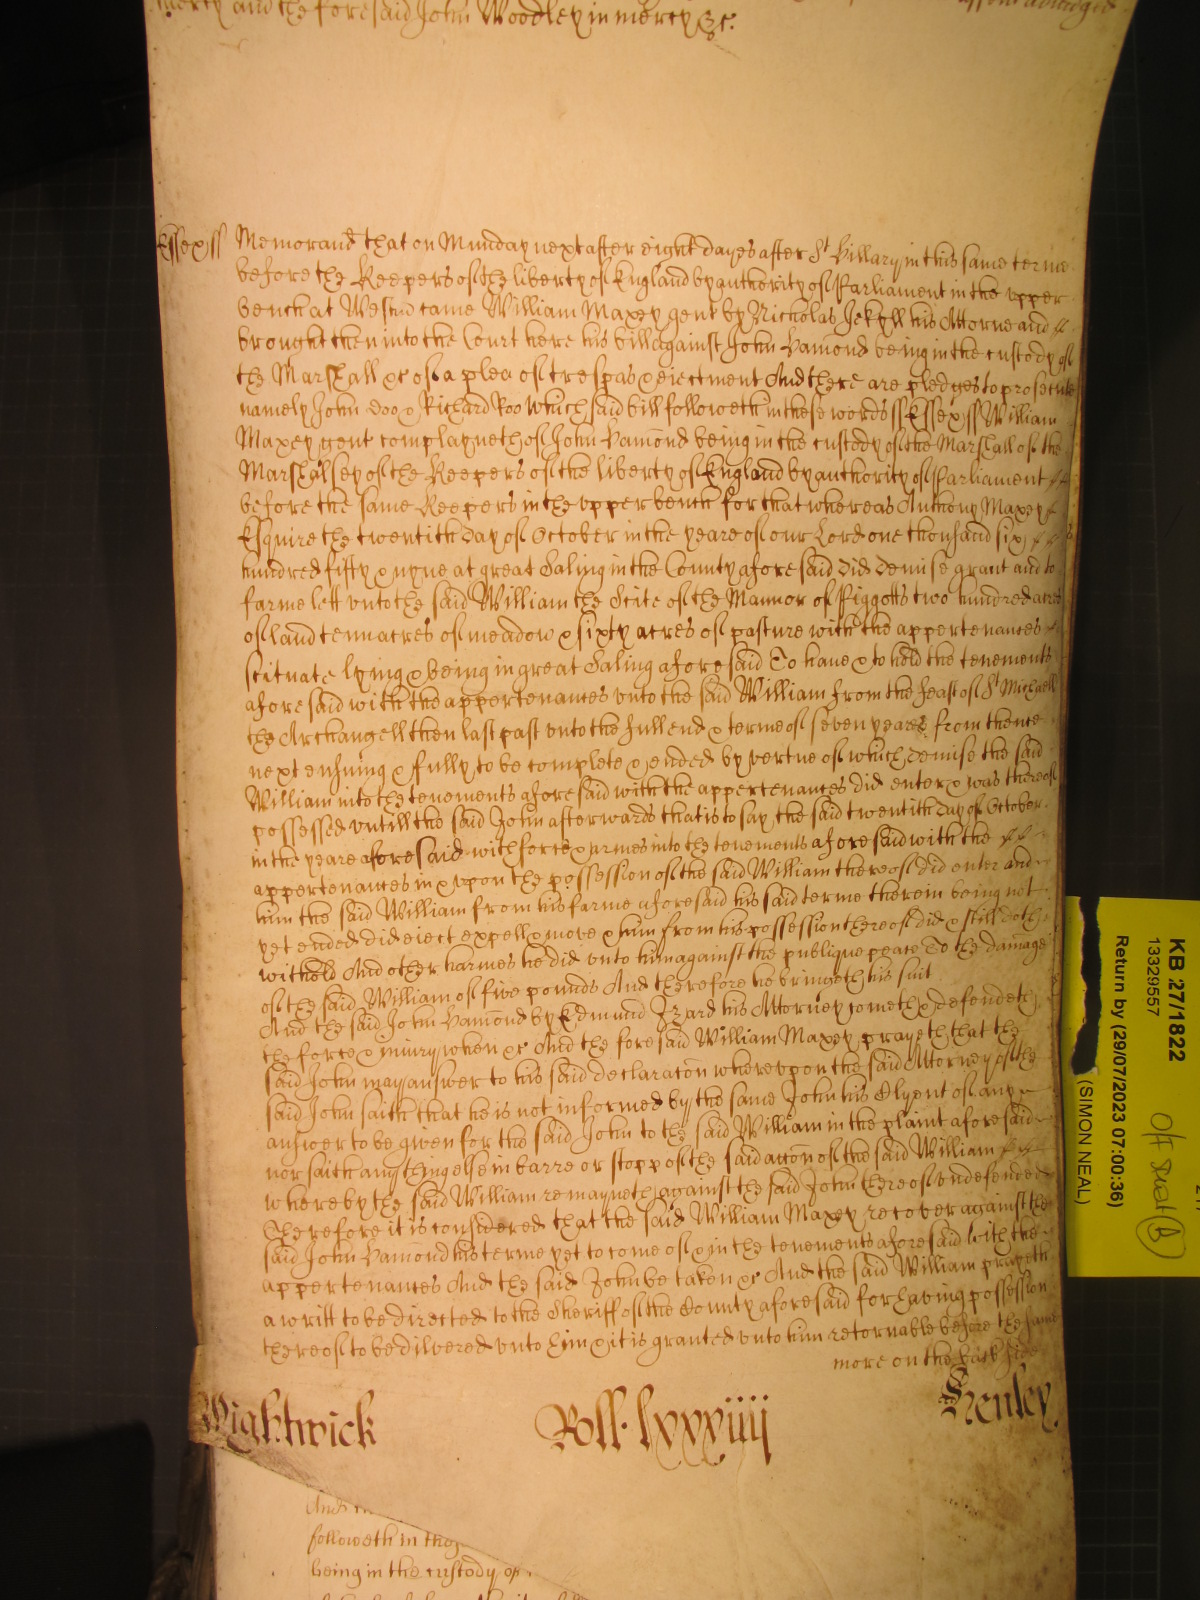 mercy and the foresaid John Woodley in mercy &c.
Essex ss Memorand that on Munday next after eight dayes after St Hillary in this same terme
before the Keepers of the liberty of England by authority of Parliament in the upper
bench at Westm came William Maxey gent by Nicholas Jekyll his Attorne and
brought then into the Court here his bill against John Hamond being in the custody of
the Marshall &c of a plea of trespas & eiectment And there are pledges to prosecute
namely John Doo & Richard Roo Which said bill followeth in these words ss Essex ss William
Maxey gent complayneth of John Hamond being in the custody of the Marshall of the
Marshalsey of the Keepers of the liberty of England by authority of Parliament
before the same Keepers in the upper bench for that whereas Anthony Maxey
Esquire the twentith day of October in the yeare of our Lord one thousand six
hundred fifty & nyne at great Saling in the County aforesaid did demise grant and to
farme lett unto the said William the Scite of the Mannor of Piggotts two hundred acres
of land tenn acres of meadow & sixty acres of pasture with the appertenances
scituate lying & being in great Saling aforesaid To have & to hold the tenements
aforesaid with the appertenances unto the said William from the feast of St Michaell
the Archangell then last past unto the full end & terme of seven yeares from thence
next ensuing & fully to be complete & ended by vertue of which demise the said
William into the tenements aforesaid with the appertenances did enter & was thereof
possessed untill the said John afterwards that is to say the said twentith day of October
in the yeare aforesaid with force & armes into the tenements aforesaid with the
appertenances in & upon the possession of the said William thereof did enter and
him the said William from his farme aforesaid his said terme therein being not
yet ended did eiect expell & move & him from his possession thereof did & still doth
withold And other harmes he did unto him against the publique peace To the damage
of the said William of five pounds And therefore he bringeth his suit
And the said John Hamond by Edmund Izard his Attorney cometh & defendeth
the force & iniury when &c And the foresaid William Maxey prayeth that the
said John may answer to his said declaracon whereupon the said Attorney of the
said John saith that he is not informed by the same John his Clyent of any
answer to be given for the said John to the said William in the plaint aforesaid
nor saith any thing else in barre or stopp of the said accon of the said William
whereby the said William remayneth against the said John thereof undefended
Therefore it is considered that the said William Maxey recover against the
said John Hamond his terme yet to come of & in the tenements aforesaid with the
appertenances And the said John be taken &c And the said William prayeth
a writt to be directed to the Sheriff of the County aforesaid for having possession
thereof to be dilivered unto him & it is granted unto him retornable before the same
more on the back side
Wightwick Roll lxxxiiij Henley
followeth in these
being in the custody of
KB 27/1822
13329557
Return by (29/07/2023 07:00:36)
(SIMON NEAL)